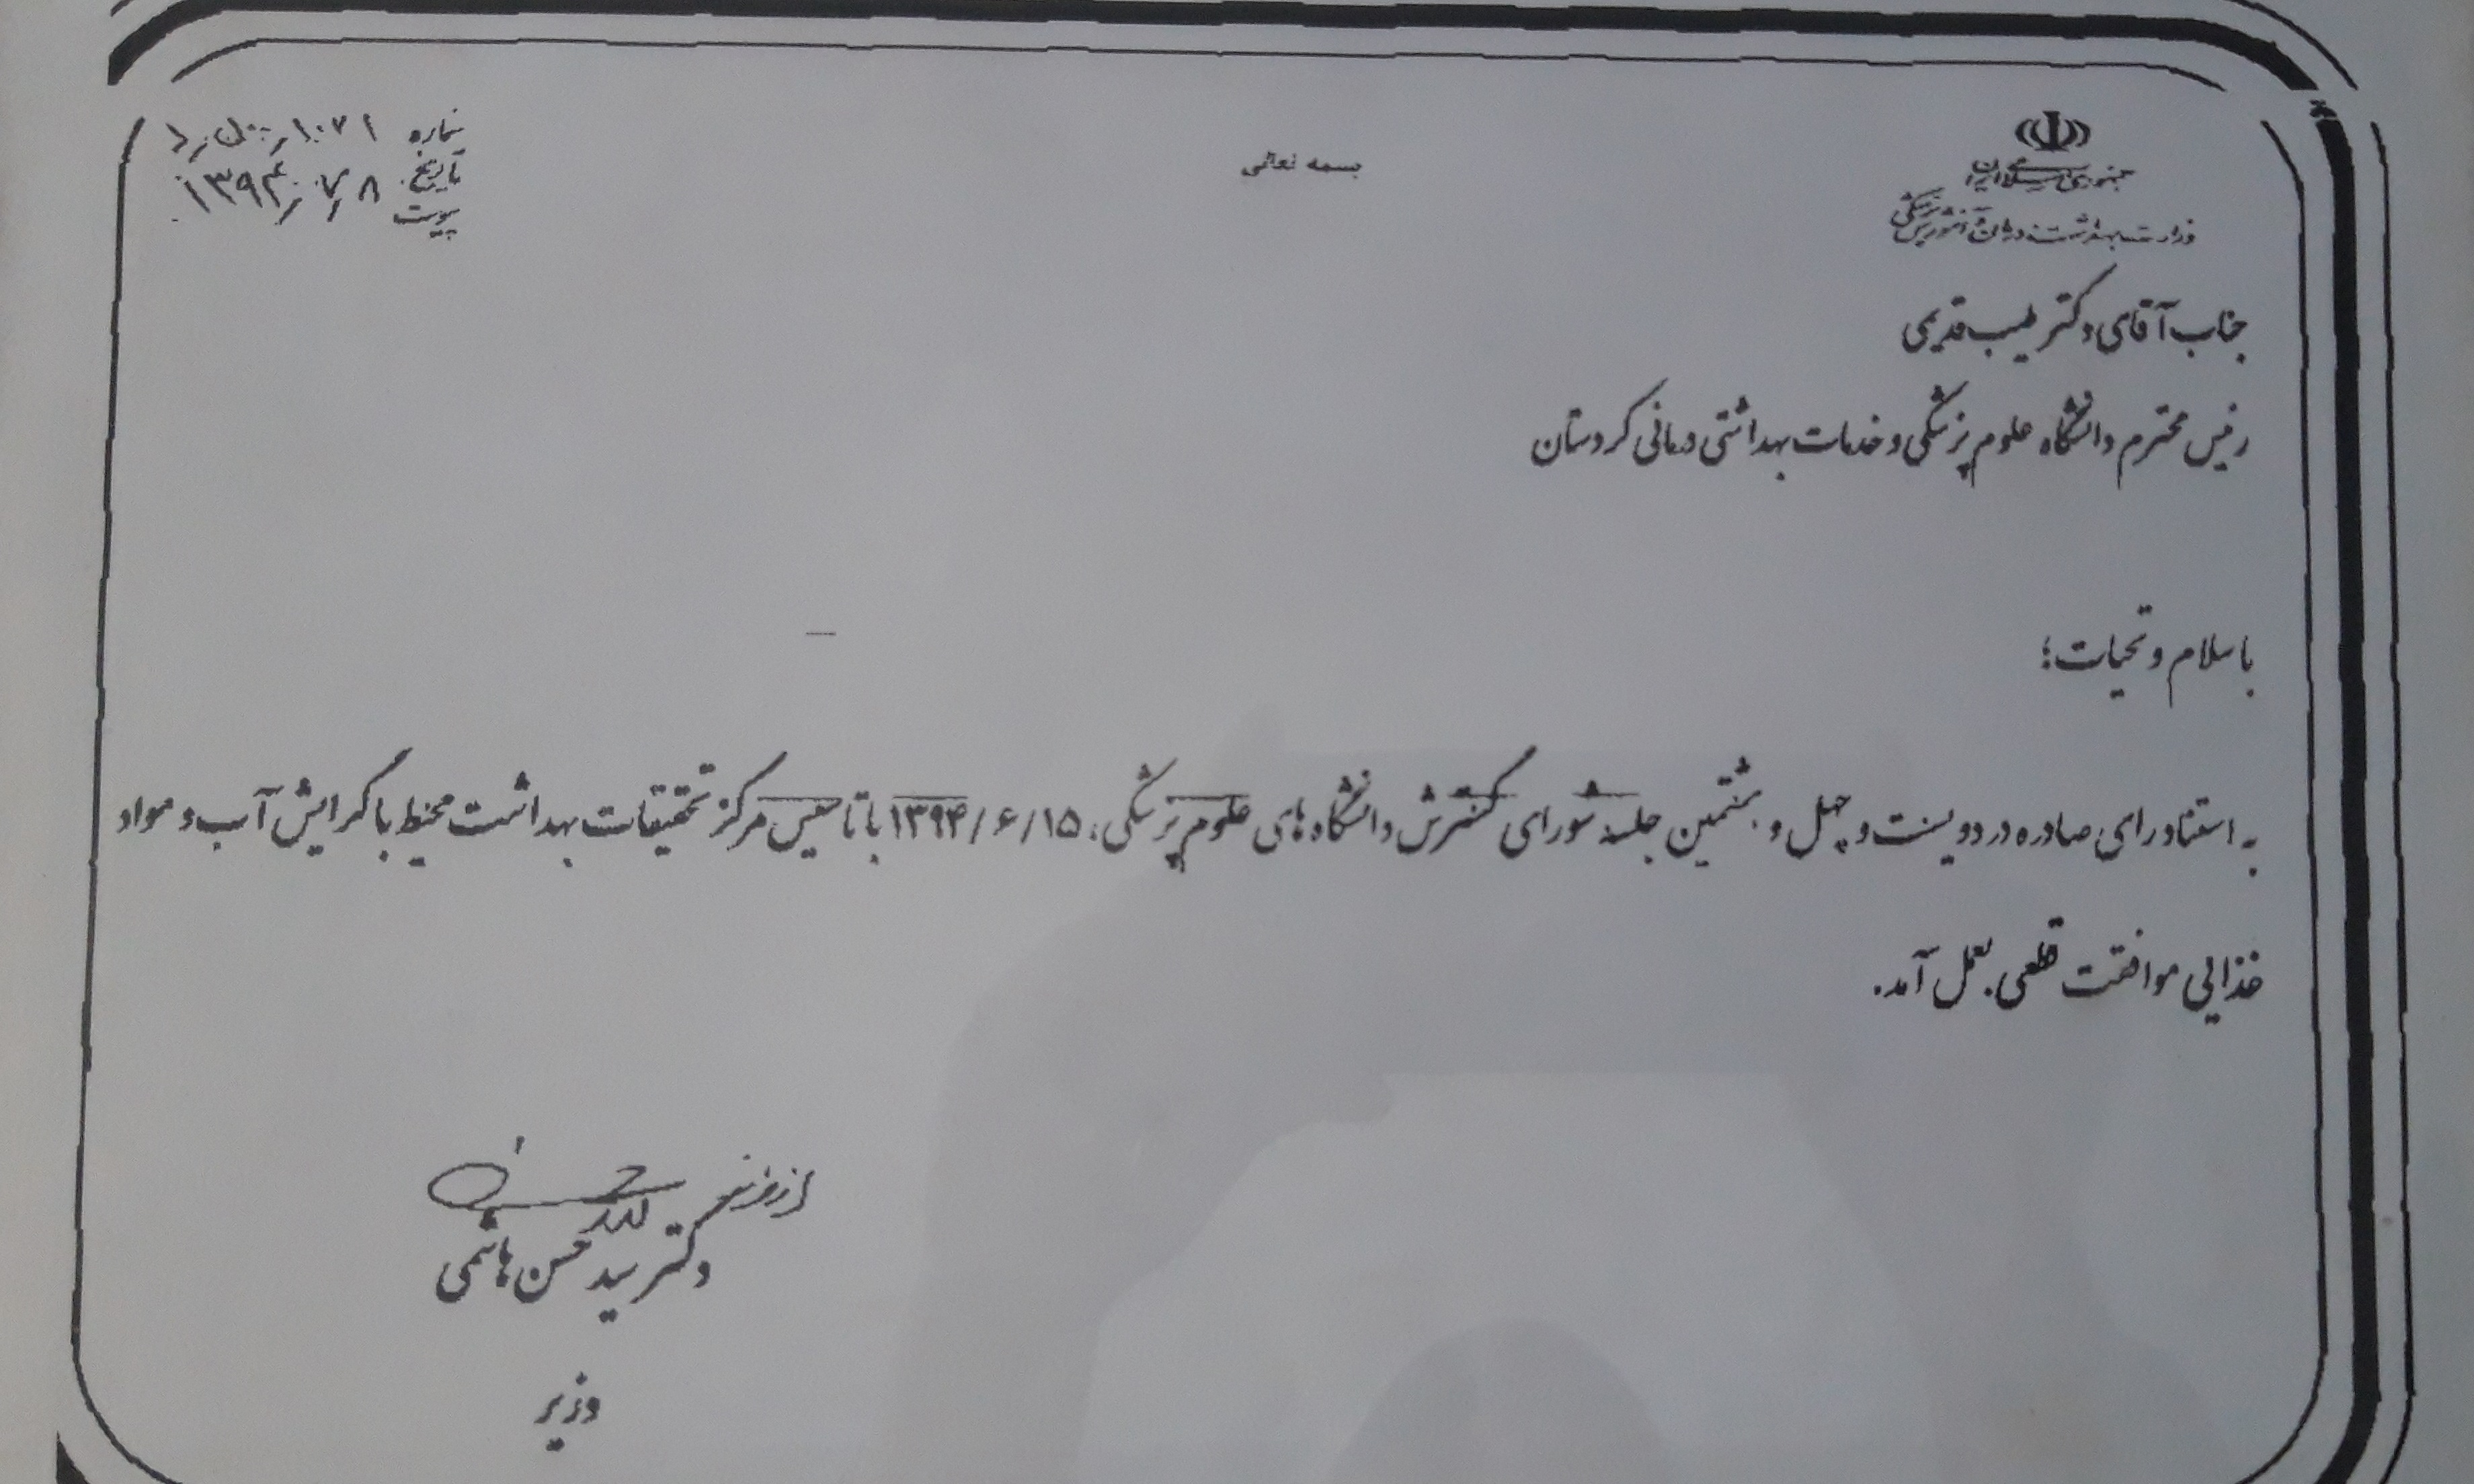 بسمه تعالی
جمهوری اسلامی ایران
وزارت بهداشت، درمان و آموزش پزشکی
شماره
تاریخ ۱۳۹۴/۷/۸
پیوست
جناب آقای دکتر طیب قدیمی
رئیس محترم دانشگاه علوم پزشکی و خدمات بهداشتی درمانی کردستان
با سلام و تحیات؛
به استناد رای صادره در دویست و چهل و هشتمین جلسه شورای گسترش دانشگاه های علوم پزشکی، ۱۳۹۴/۶/۱۵ با تاسیس مرکز تحقیقات بهداشت محیط با گرایش آب و مواد
غذایی موافقت قطعی بعمل آمد.
دکتر سید حسن هاشمی
وزیر